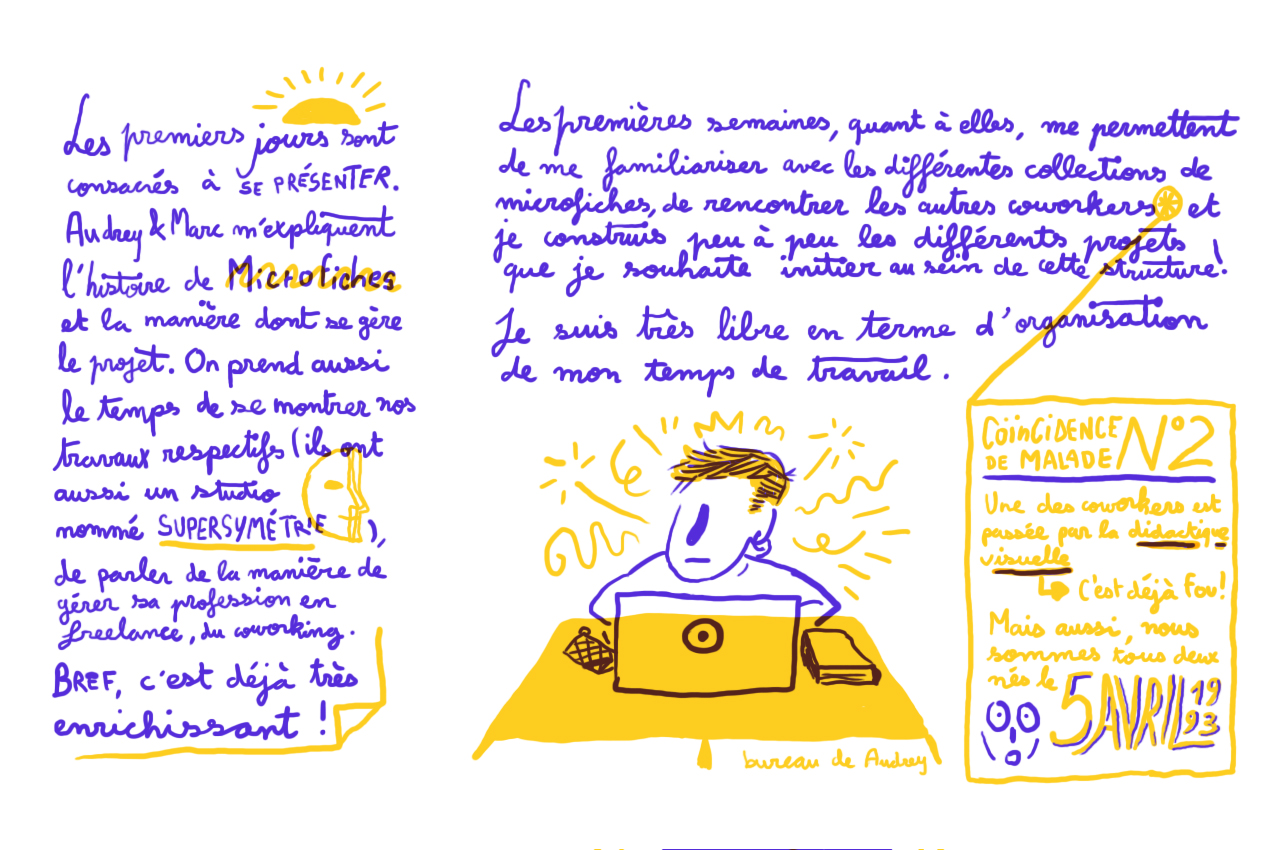 Les premiers jours sont
consacrés à SE PRÉSENTER.
Audrey & Marc m'expliquent
l'histoire de Microfiches
et la manière dont se gère
le projet. On prend aussi
le temps de se montrer nos
travaux respectifs (ils ont
aussi un studio
nommé SUPERSYMÉTRIE),
de parler de la manière de
gérer sa profession en
freelance, du coworking.
BREF, c'est déjà très
enrichissant !
Les premières semaines, quant à elles, me permettent
de me familiariser avec les différentes collections de
microfiches, de rencontrer les autres coworkers* et
je construis peu à peu les différents projets
que je souhaite initier au sein de cette structure !
Je suis très libre en terme d'organisation
de mon temps de travail.
bureau de Audrey
COÏNCIDENCE
DE MALADE N°2
Une des coworkers est
passée par la didactique
visuelle
C'est déjà fou!
Mais aussi, nous
sommes tous deux
nés le
5 AVRIL 1993